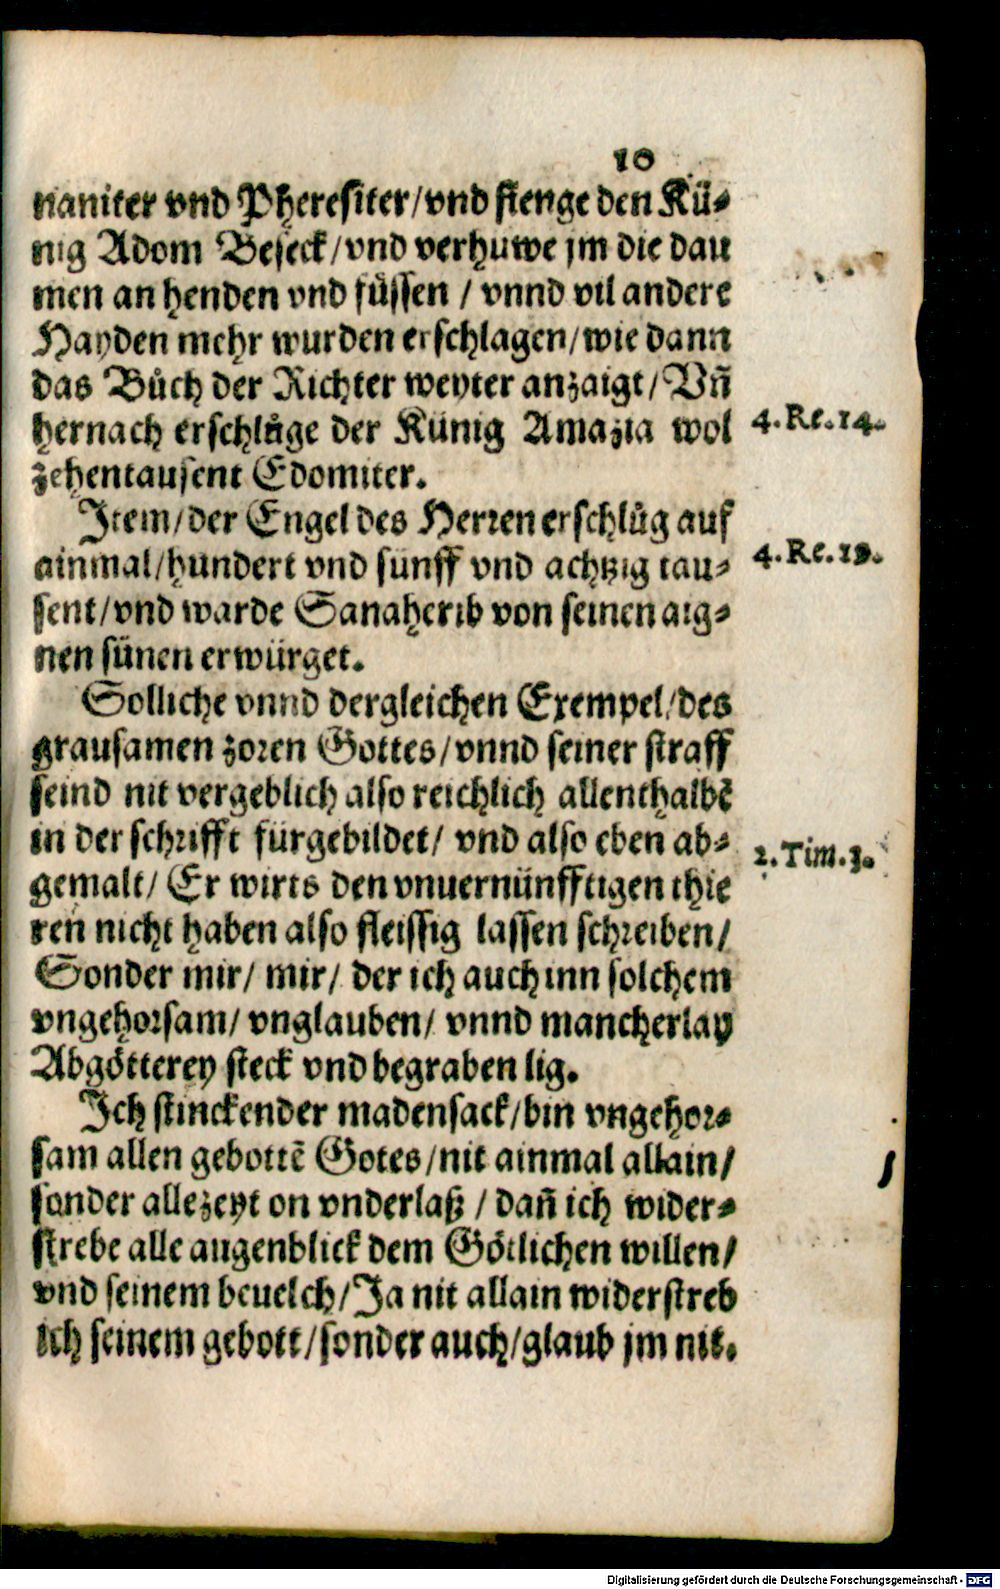 10
naniter vnd Pheresiter/vnd fienge den Kü-
nig Adom Beseck/vnd verhuwe jm die dau
men an henden vnd füssen / vnnd vil andere
Hayden mehr wurden erschlagen/wie dann
das Bůch der Richter weyter anzaigt/Vñ
hernach erschlůge der Künig Amazia wol
4.Re.14.
zehentausent Edomiter.
Item/der Engel des Herren erschlůg auf
ainmal/hundert vnd fünff vnd achtzig tau-
4.Re.19.
sent/vnd warde Sanaherib von seinen aig-
nen sünen erwürget.
Solliche vnnd dergleichen Exempel/des
grausamen zoren Gottes/vnnd seiner straff
seind nit vergeblich also reichlich allenthalbẽ
in der schrifft fürgebildet/ vnd also eben ab-
2.Tim.3.
gemalt/ Er wirts den vnuernünfftigen thie
ren nicht haben also fleissig lassen schreiben/
Sonder mir/ mir/ der ich auch inn solchem
vngehorsam/ vnglauben/ vnnd mancherlay
Abgötterey steck vnd begraben lig.
Ich stinckender madensack/bin vngehor-
sam allen gebottẽ Gotes/nit ainmal allain/
sonder allezeyt on vnderlaß / dañ ich wider-
strebe alle augenblick dem Götlichen willen/
vnd seinem beuelch/Ja nit allain widerstreb
ich seinem gebott/sonder auch/glaub jm nit.
Digitalisierung gefördert durch die Deutsche Forschungsgemeinschaft - DFG